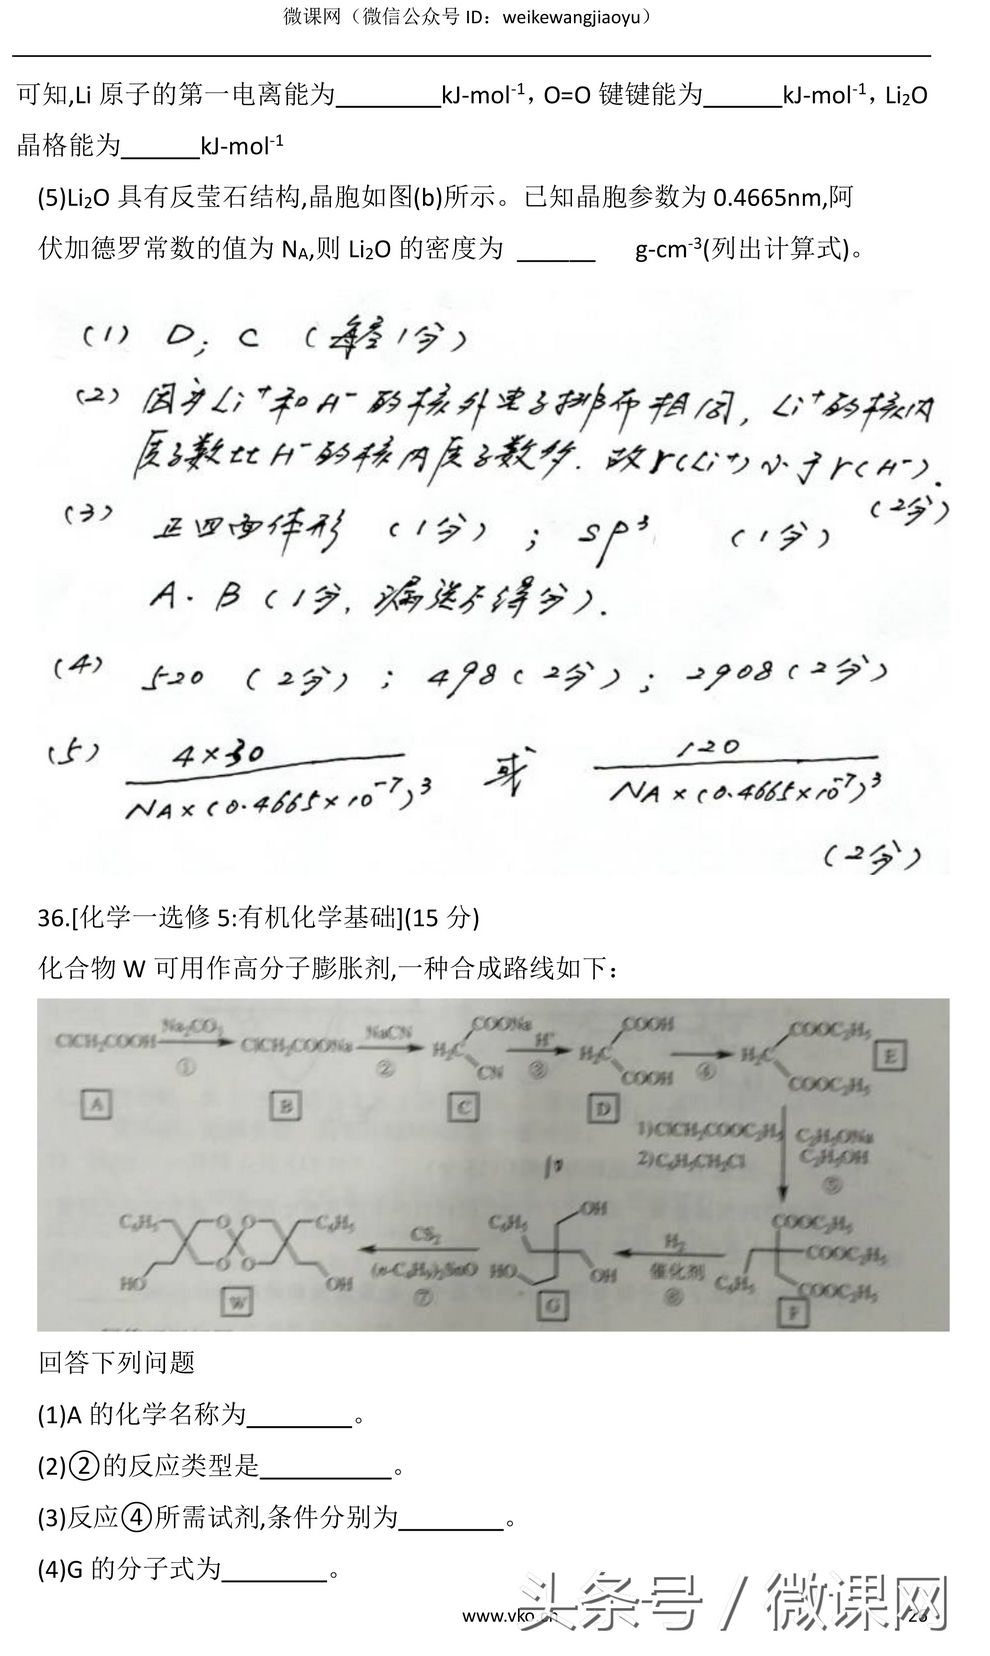 微课网（微信公众号 ID：weikewangjiaoyu）
可知,Li 原子的第一电离能为________kJ-mol-1，O=O 键键能为______kJ-mol-1，Li2O
晶格能为______kJ-mol-1
(5)Li2O 具有反莹石结构,晶胞如图(b)所示。已知晶胞参数为 0.4665nm,阿
伏加德罗常数的值为 NA,则 Li2O 的密度为 ______ g-cm-3(列出计算式)。
(1) D; C (每空1分)
(2) 因为Li+和H-的核外电子排布相同, Li+的核内
质子数比H-的核内质子数多. 故r(Li+)小于r(H-).
(2分)
(3) 正四面体形 (1分) ; sp3 (1分)
A. B (1分, 漏选不得分).
(4) 520 (2分) ; 498 (2分) ; 2908 (2分)
(5) 4×30 / NA×(0.4665×10-7)3 或 120 / NA×(0.4665×10-7)3
(2分)
36.[化学一选修 5:有机化学基础](15 分)
化合物 W 可用作高分子膨胀剂,一种合成路线如下：
ClCH2COOH Na2CO3 ① ClCH2COONa NaCN ② H2C COONa CN H+ ③ H2C COOH COOH ④ H2C COOC2H5 COOC2H5 E
A B C D
1)ClCH2COOC2H5 C2H5ONa
2)C6H5CH2Cl C2H5OH
⑤
C6H5 O O C6H5 CS2 C6H5 OH H2 COOC2H5
HO O O OH (n-C4H9)2SnO HO OH 催化剂 C6H5 COOC2H5
COOC2H5
W ⑦ G ⑥ F
回答下列问题
(1)A 的化学名称为________。
(2)②的反应类型是__________。
(3)反应④所需试剂,条件分别为________。
(4)G 的分子式为________。
头条号 / 微课网